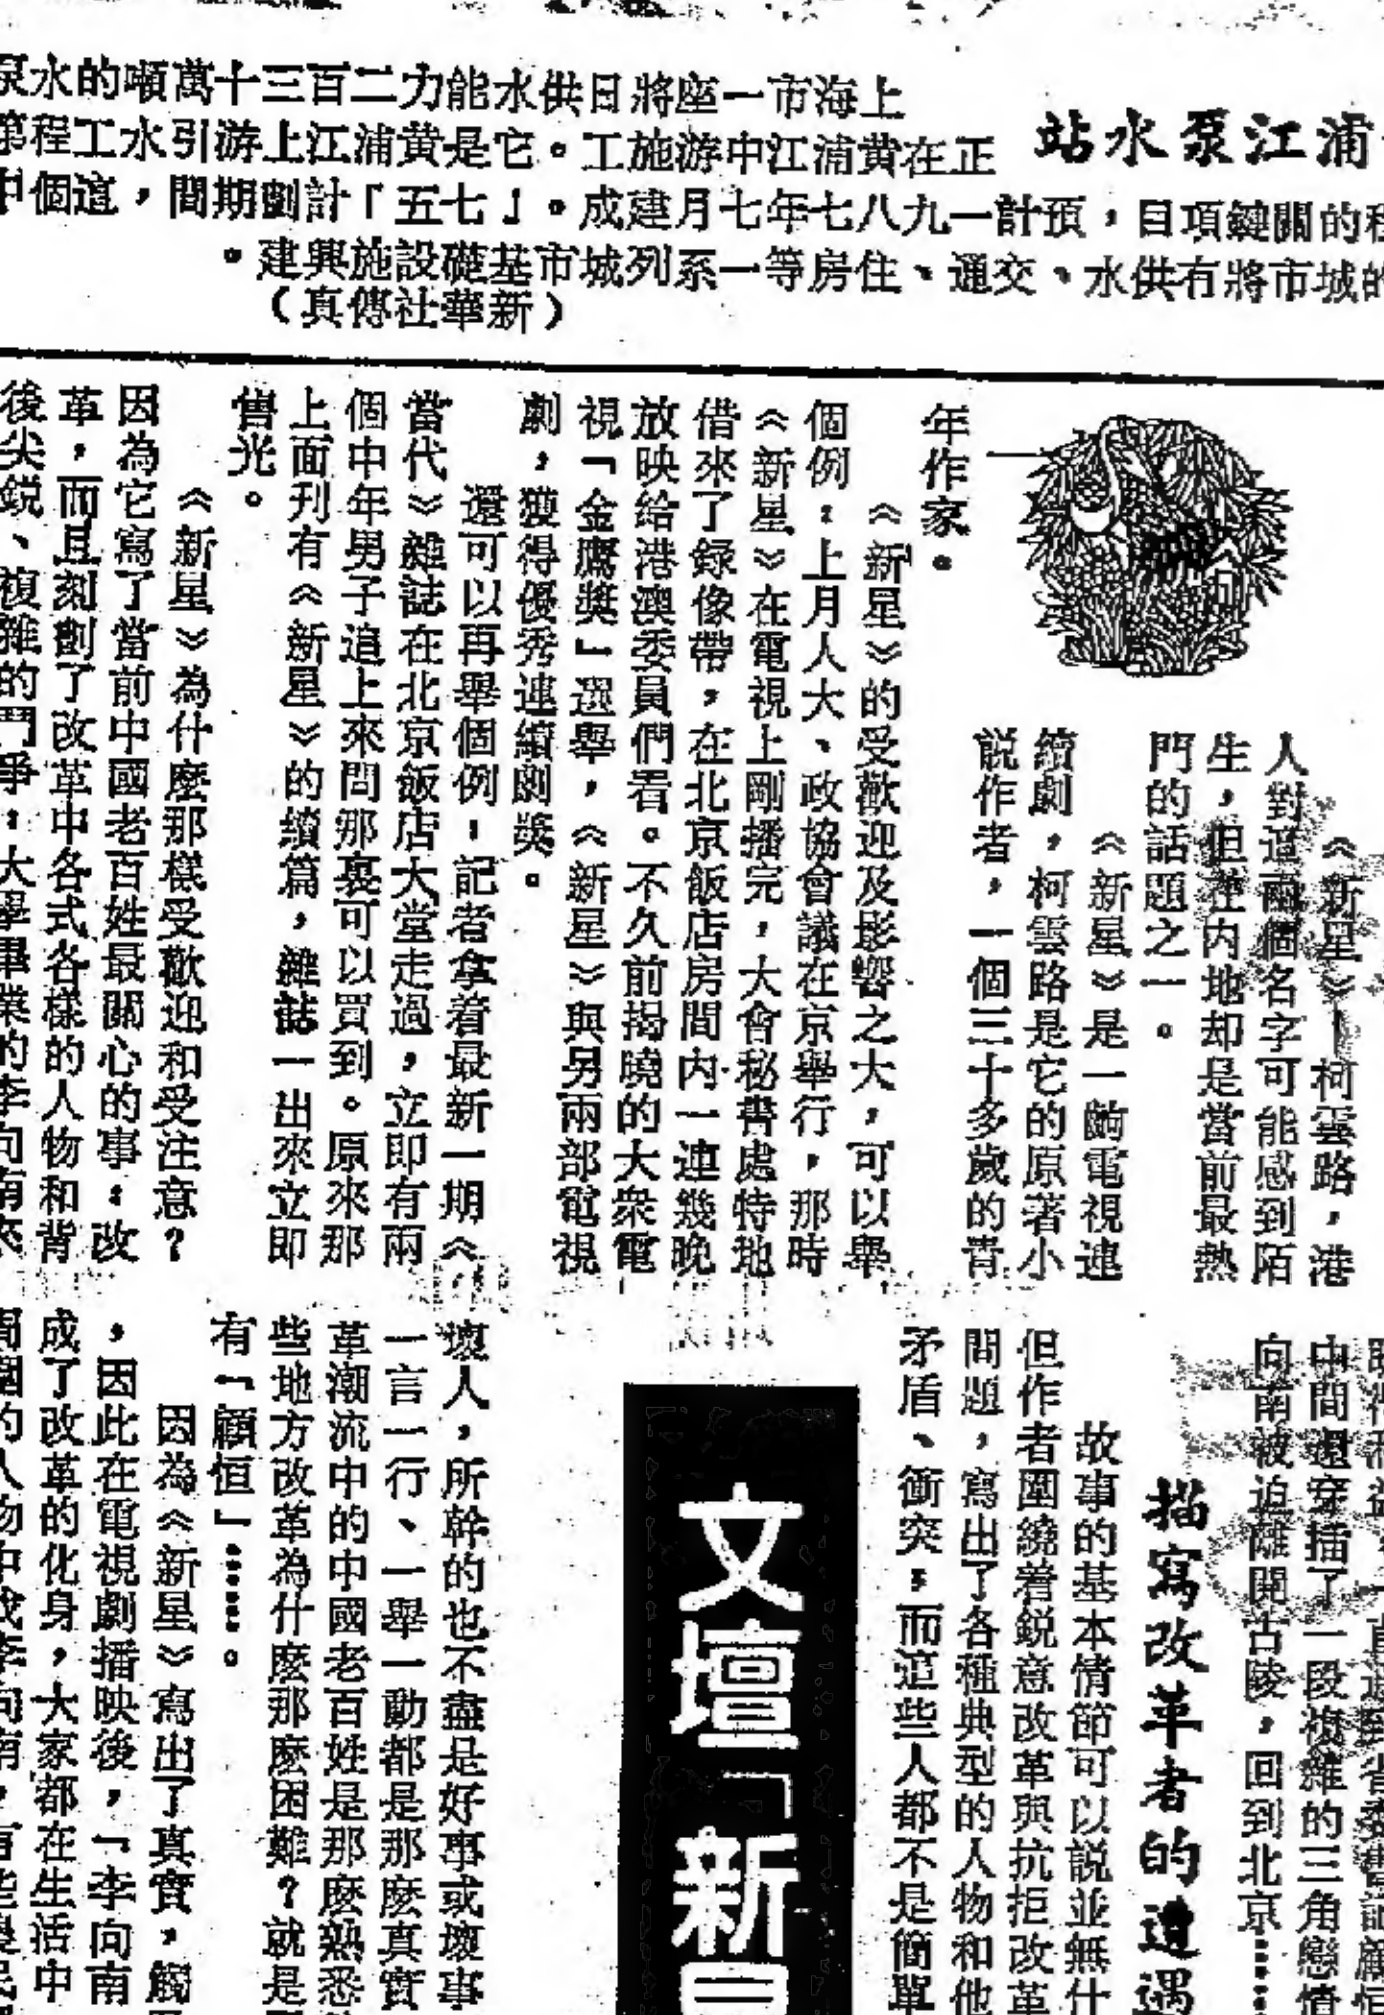 浦江泵水站
上海市一座將日供水能力二百三十萬噸的水泵
正在黄浦江中游施工。它是黄浦江上游引水工程第
程的關鍵項目，預計一九八七年七月建成。「七五」計劃期間，這個中
的城市將有供水、交通、住房等一系列城市基礎設施興建。
（新華社傳真）
《新星》—柯雲路，港
人對這兩個名字可能感到陌
生，但在内地却是當前最熱
門的話題之一。
《新星》是一齣電視連
續劇，柯雲路是它的原著小
説作者，一個三十多歲的青
年作家。
《新星》的受歡迎及影響之大，可以舉
個例：上月人大、政協會議在京舉行，那時
《新星》在電視上剛播完，大會秘書處特地
借來了録像帶，在北京飯店房間内一連幾晚
放映給港澳委員們看。不久前揭曉的大衆電
視「金鷹獎」選舉，《新星》與另兩部電視
劇，獲得優秀連續劇獎。
還可以再舉個例：記者拿着最新一期《
當代》雜誌在北京飯店大堂走過，立即有兩
個中年男子追上來問那裏可以買到。原來那
上面刊有《新星》的續篇，雜誌一出來立即
售光。
《新星》為什麼那樣受歡迎和受注意？
因為它寫了當前中國老百姓最關心的事：改
革，而且刻劃了改革中各式各樣的人物和背
後尖鋭、複雜的鬥爭：大學畢業的李向南來
中間還穿插了一段複雜的三角戀情
向南被迫離開古陵，回到北京……
描寫改革者的遭遇
故事的基本情節可以説並無什
但作者圍繞着鋭意改革與抗拒改革
問題，寫出了各種典型的人物和他
矛盾、衝突；而這些人都不是簡單
文壇「新星
壞人，所幹的也不盡是好事或壞事
一言一行、一舉一動都是那麽真實
革潮流中的中國老百姓是那麽熟悉
些地方改革為什麽那麽困難？就是
有「顧恒」……。
因為《新星》寫出了真實，觸
，因此在電視劇播映後，「李向南
成了改革的化身，大家都在生活中
周圍的人物中找李向南，有些